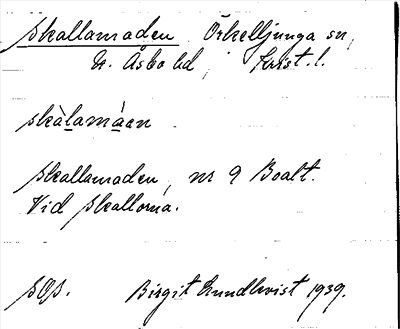 Skallamaden Örkelljunga sn,
N. Åsbo hd, Krist. l.
skàlamáen
Skallamaden, nr 9 Boalt.
Vid Skallorna.
SOS. Birgit Lundkvist 1939.